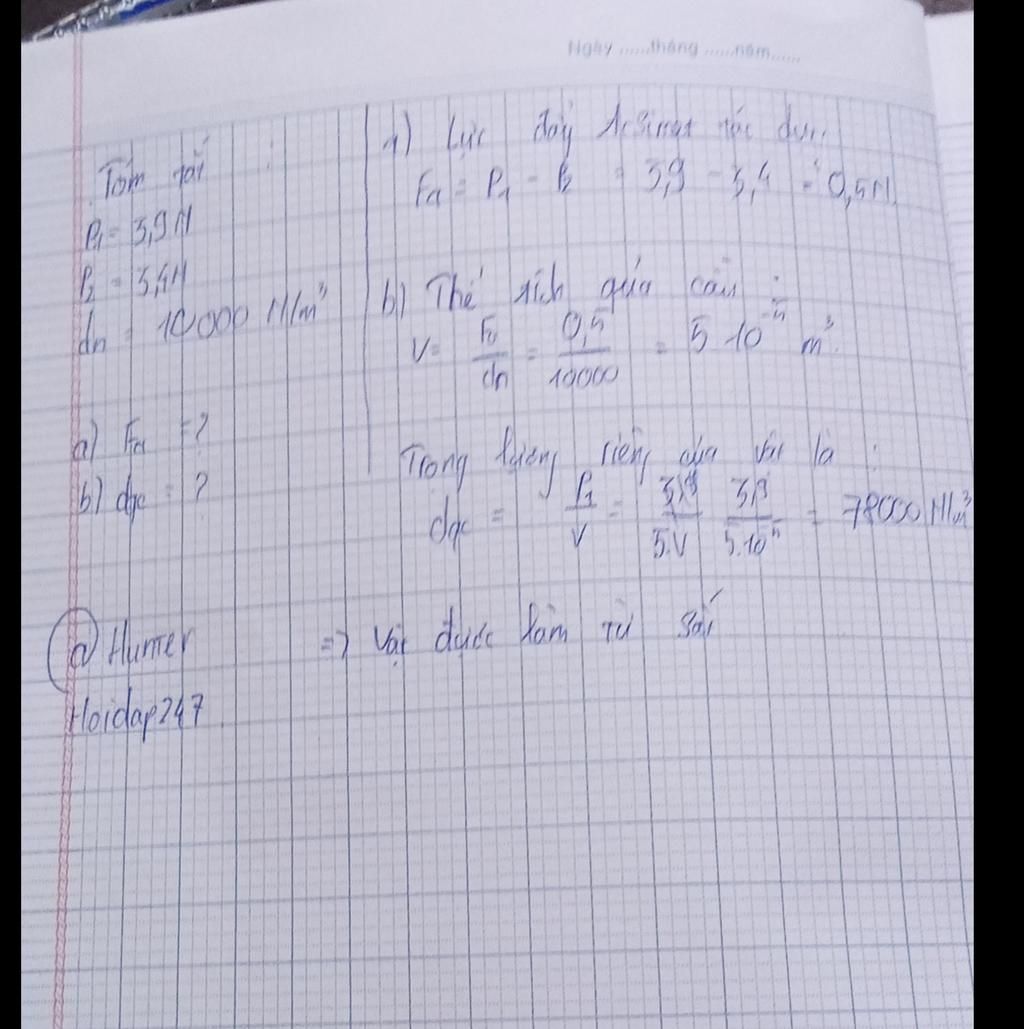 Ngày ......tháng ......năm......
Tóm tắt :
P₁ = 3,9 N
P₂ = 3,4 N
dn = 10000 N/m³
a) Fa = ?
b) dqc = ?
a) Lực đẩy Acsimet tác dụng
Fa = P₁ - P₂ = 3,9 - 3,4 = 0,5N
b) Thể tích quả cầu :
V = Fa/dn = 0,5/10000 = 5.10⁻⁵ m³.
Trong lượng riêng của vật là :
dqc = P₁/V = 3,9/5.10⁻⁵ = 78000 N/m³
=> Vật được làm từ sắt
@ Hunter
Hoidap247.